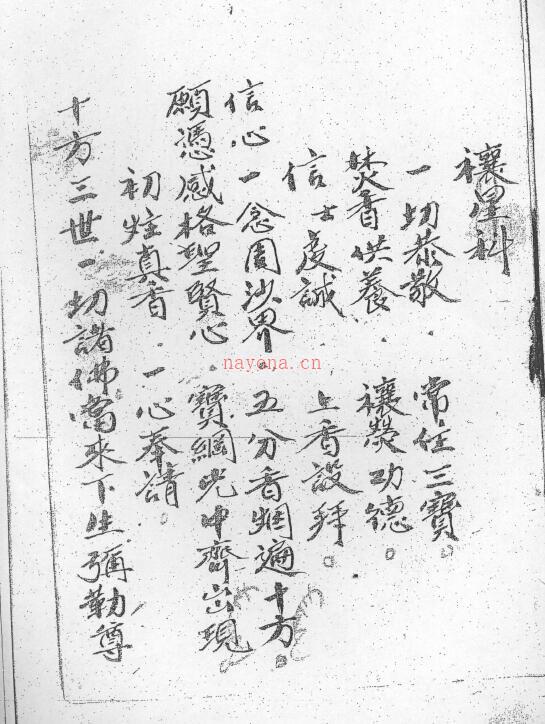 禳星科
一切恭敬 常住三寶
焚香供養 禳熒功德
信士虔誠 上香設拜
信心一念周沙界 五分香烟遍十方
願憑感格聖賢心 寶網光中齊出現
初炷真香 一心奉請
十方三世一切諸佛當來下生彌勒尊
nayona.cn